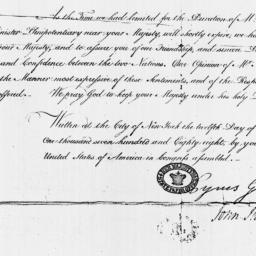 As the Time we had limited for the Duration of M
nister Plenipotentiary near your Majesty, will shortly expire, we h
our Majesty, and to assure you of our Friendship, and sincere
and Confidence between the two Nations. Our Opinion of M
the Manner most expressive of these Sentiments, and of the Resp
offered. We pray God to keep your Majesty under his holy
Written at the City of New York the twelfth Day of
one thousand seven hundred and Eighty eight, by you
United States of America in Congress assembled.
Cyrus G
John